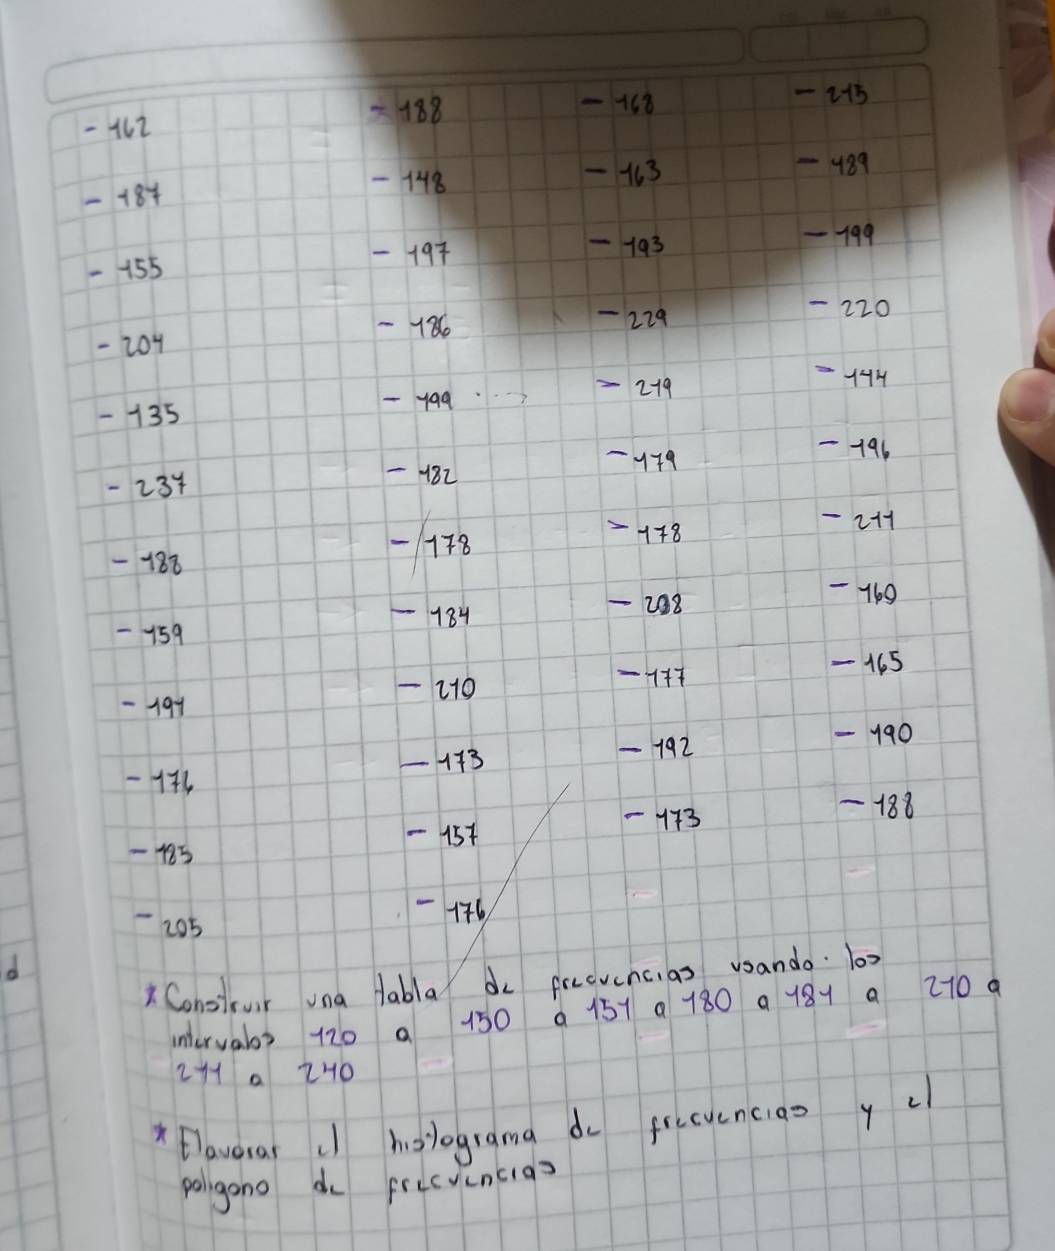 - 162 - 188 - 168 - 215
- 187 - 148 - 163 - 189
- 155 - 197 - 193 - 199
- 204 - 186 - 229 - 220
- 135 - 199 - 219 - 144
- 237 - 182 - 179 - 196
- 188 - 178 - 178 - 211
- 159 - 184 - 208 - 160
- 191 - 210 - 177 - 165
- 176 - 173 - 192 - 190
- 185 - 157 - 173 - 188
- 205 - 176
* Construir una tabla de frecuencias usando los
intervalos 120 a 150 a 151 a 180 a 181 a 210 a
211 a 240
* Elavorar el histograma de frecuencias y el
poligono de frecuencias